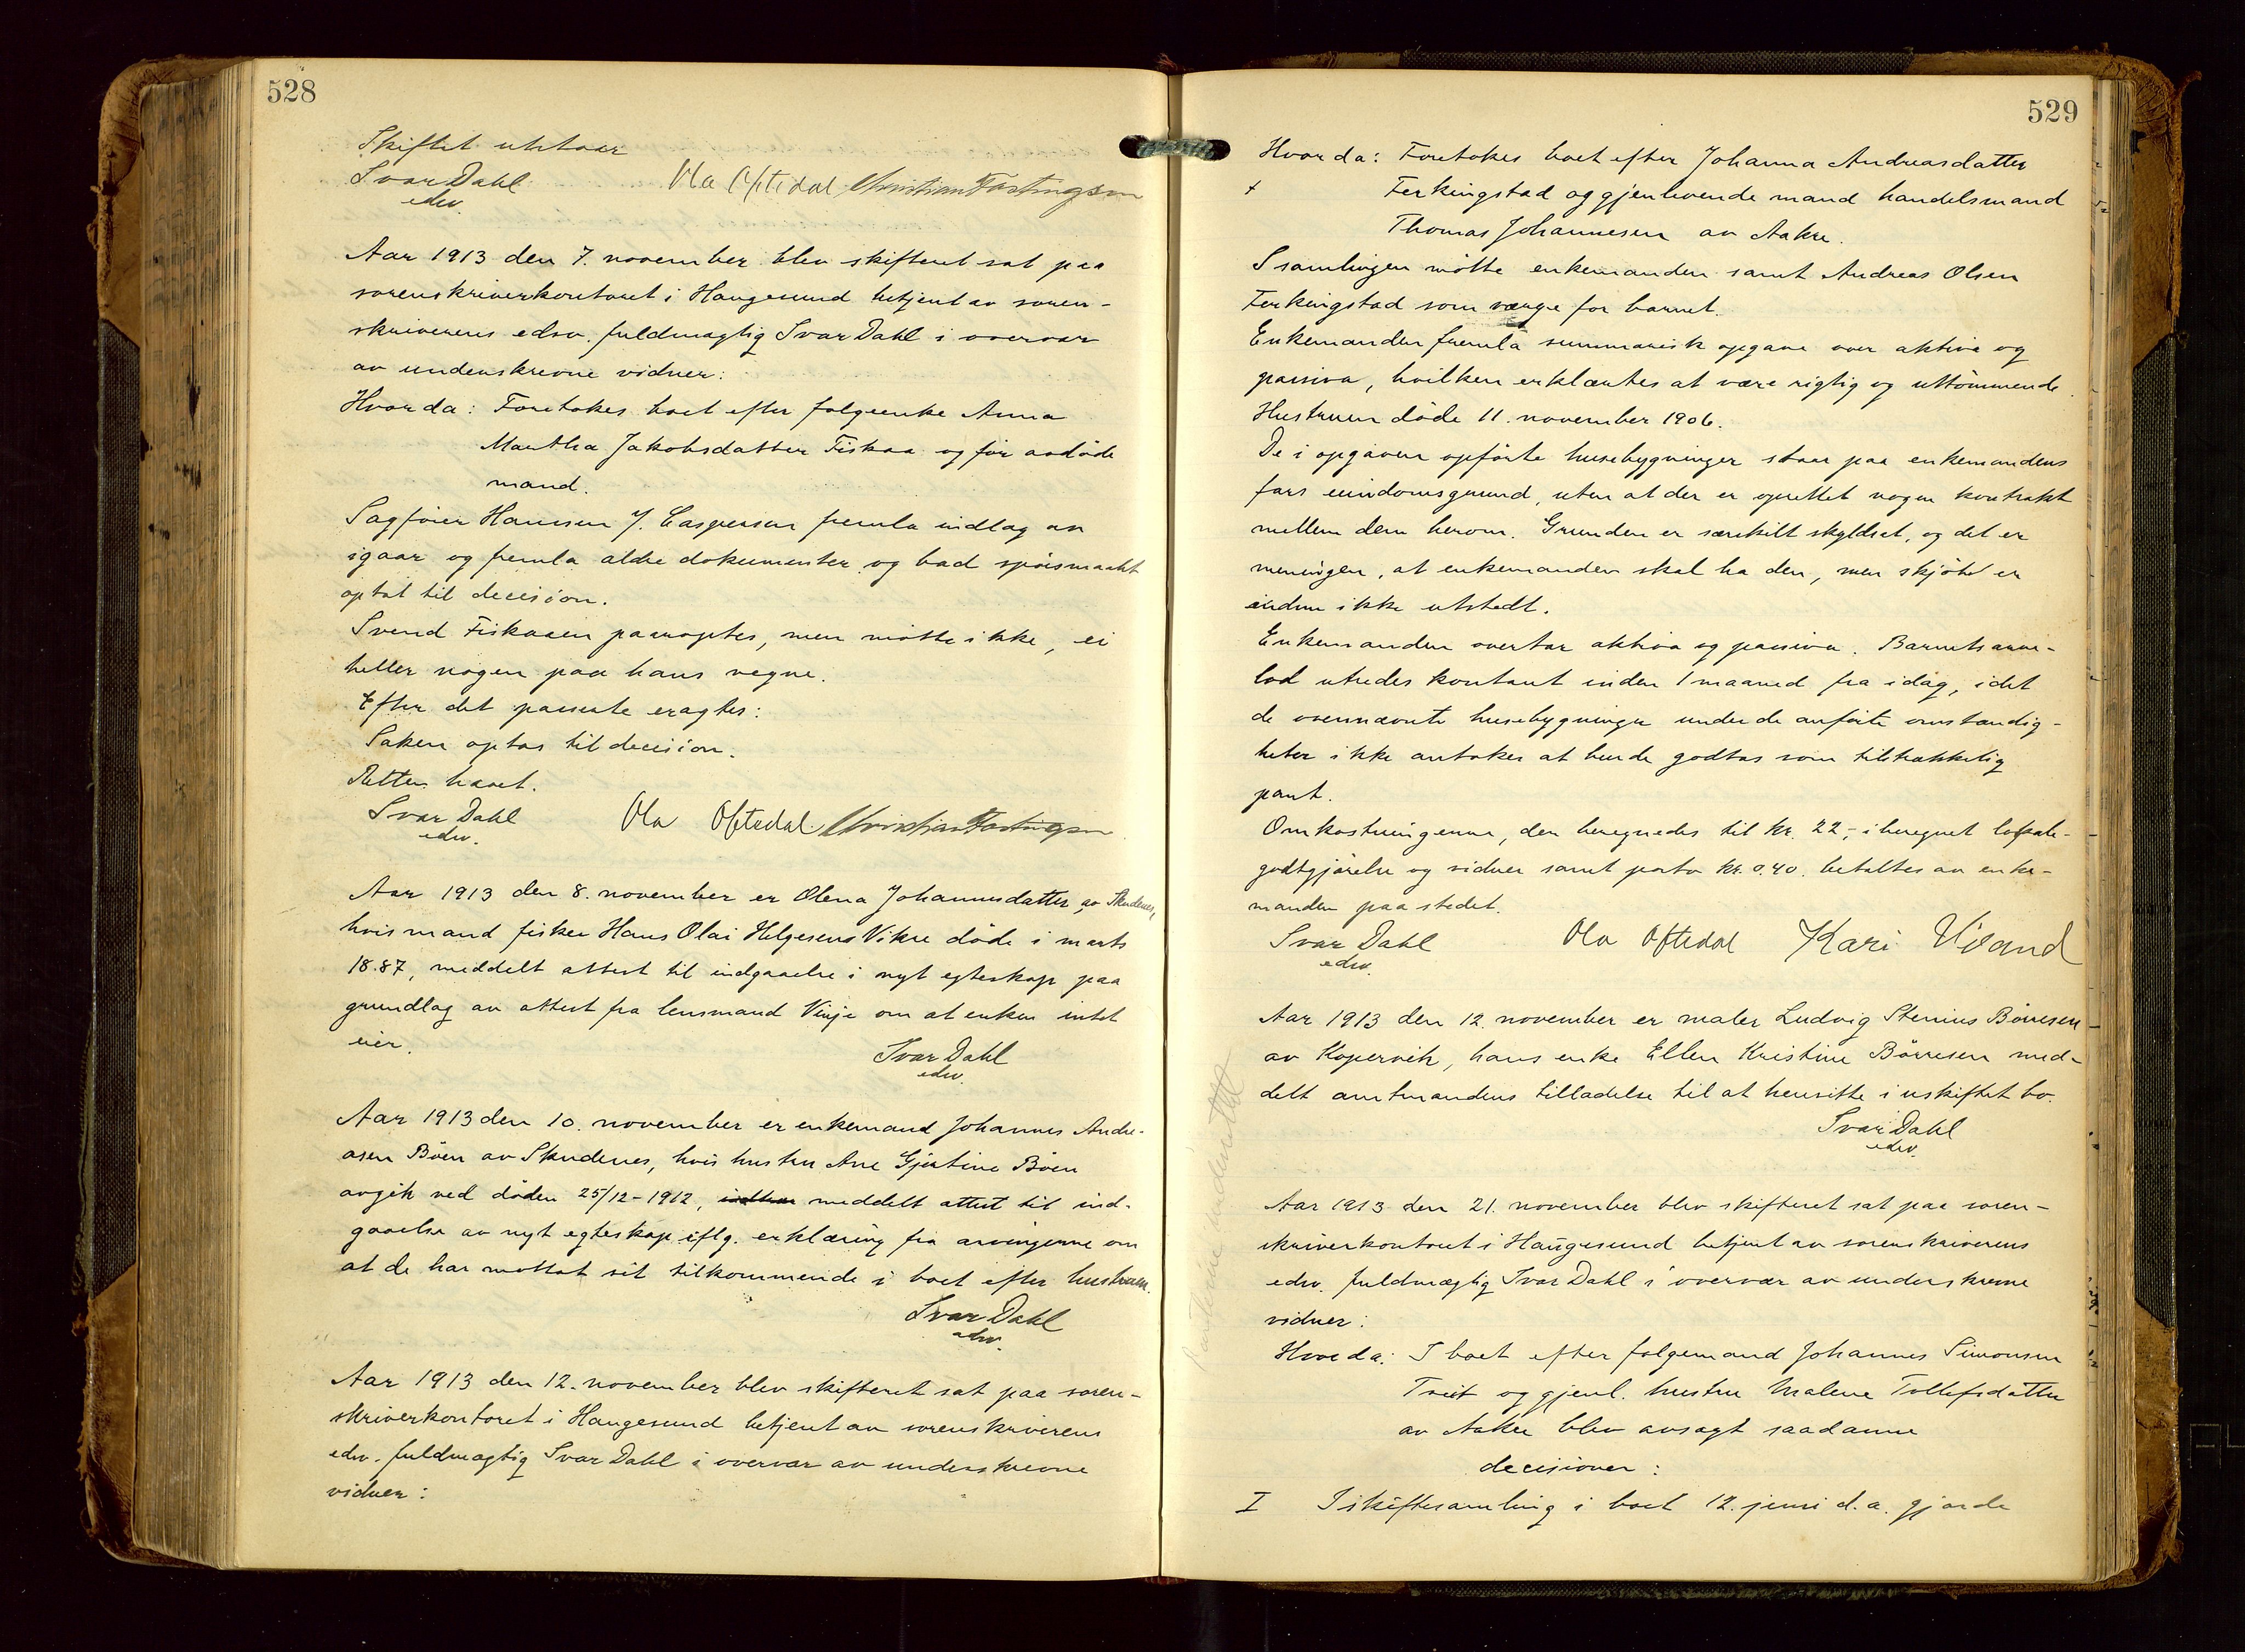 528
Skiftet utstaar
Ivar Dahl
edsv.
Ola Oftedal Christian Fastingsen
Aar 1913 den 7. november blev skifteret sat paa
sorenskriverkontoret i Haugesund betjent av soren-
skriverens edsv. fuldmægtig Ivar Dahl i overvær
av underskrevne vidner:
Hvor da: Foretokes boet efter følgeenke Anna
Martha Jakobsdatter Fiskaa og før avdöde
mand.
Sagfører Hansen f. Caspersen fremla indlæg av
igaar og fremla ældre dokumenter og bad spörsmaalet
optat til decision.
Svend Fiskaaen paaroptes, men mötte ikke, ei
heller nogen paa hans vegne.
Efter det passerte eragtes:
Saken optas til decision.
Retten hævet.
Ivar Dahl
edsv.
Ola Oftedal Christian Fastingsen
Aar 1913 den 8. november er Olena Johannesdatter av Skudenes,
hvis mand fisker Hans Olai Helgesens Vikre döde i marts
1887, meddelt attest til indgaaelse i nyt egteskap paa
grundlag av attest fra lensmand Vinje om at enken intet
eier.
Ivar Dahl
edsv.
Aar 1913 den 10. november er enkemand Johannes Andre-
asen Böen av Skudenes, hvis hustru Ane Gjertine Böen
avgik ved döden 25/12-1912, meddelt attest til ind-
gaaelse av nyt egteskap iflg. erklæring fra arvingerne om
at de har mottat sit tilkommende i boet efter hustruen.
Ivar Dahl
edsv.
Aar 1913 den 12. november blev skifteret sat paa soren-
skriverkontoret i Haugesund betjent av sorenskriverens
edsv. fuldmægtig Ivar Dahl i overvær av underskrevne
vidner:
529
Hvor da: Foretokes boet efter Johanna Andreasdatter
Ferkingstad og gjenlevende mand handelsmand
Thomas Johannesen av Aakre.
I samlingen mötte enkemanden samt Andreas Olsen
Ferkingstad som værge for barnet.
Enkemanden fremla summarisk opgave over aktiva og
passiva, hvilken erklærtes at være rigtig og uttömmende.
Hustruen döde 11. november 1906.
De i opgaven opförte husebygninger staar paa enkemandens
fars eiendomsgrund, uten at der er oprettet nogen kontrakt
mellem dem herom. Grunden er særskilt skyldsat, og det er
meningen, at enkemanden skal ha den, men skjöte er
endnu ikke utstedt.
Enkemanden overtar aktiva og passiva. Barnets arve-
lod utredes kontant inden 1 maaned fra idag, idet
de ovennævnte husebygninger under de anförte omstændig-
heter ikke antokes at burde godtas som tilstrækkelig
pant.
Omkostningerne, der beregnedes til kr. 22,-, iberegnet lokale-
godtgjörelse og vidner samt porto kr. 0.40. betaltes av enke-
manden paa stedet.
Ivar Dahl
edsv.
Ola Oftedal Kari Viland
Aar 1913 den 12. november er maler Ludvig Stenius Börresen
av Kopervik, hans enke Ellen Kristine Börresen med-
delt amtmandens tilladelse til at hensitte i uskiftet bo.
Ivar Dahl
edsv.
Aar 1913 den 21. november blev skifteret sat paa soren-
skriverkontoret i Haugesund betjent av sorenskriverens
edsv. fuldmægtig Ivar Dahl i overvær av underskrevne
vidner:
Hvor da: I boet efter følgemand Johannes Simonsen
Tveit og gjenl. hustru Malene Tollefsdatter
av Aakre blev avsagt saadanne
decisioner:
I I skiftesamling i boet 12. juni d.a. gjorde